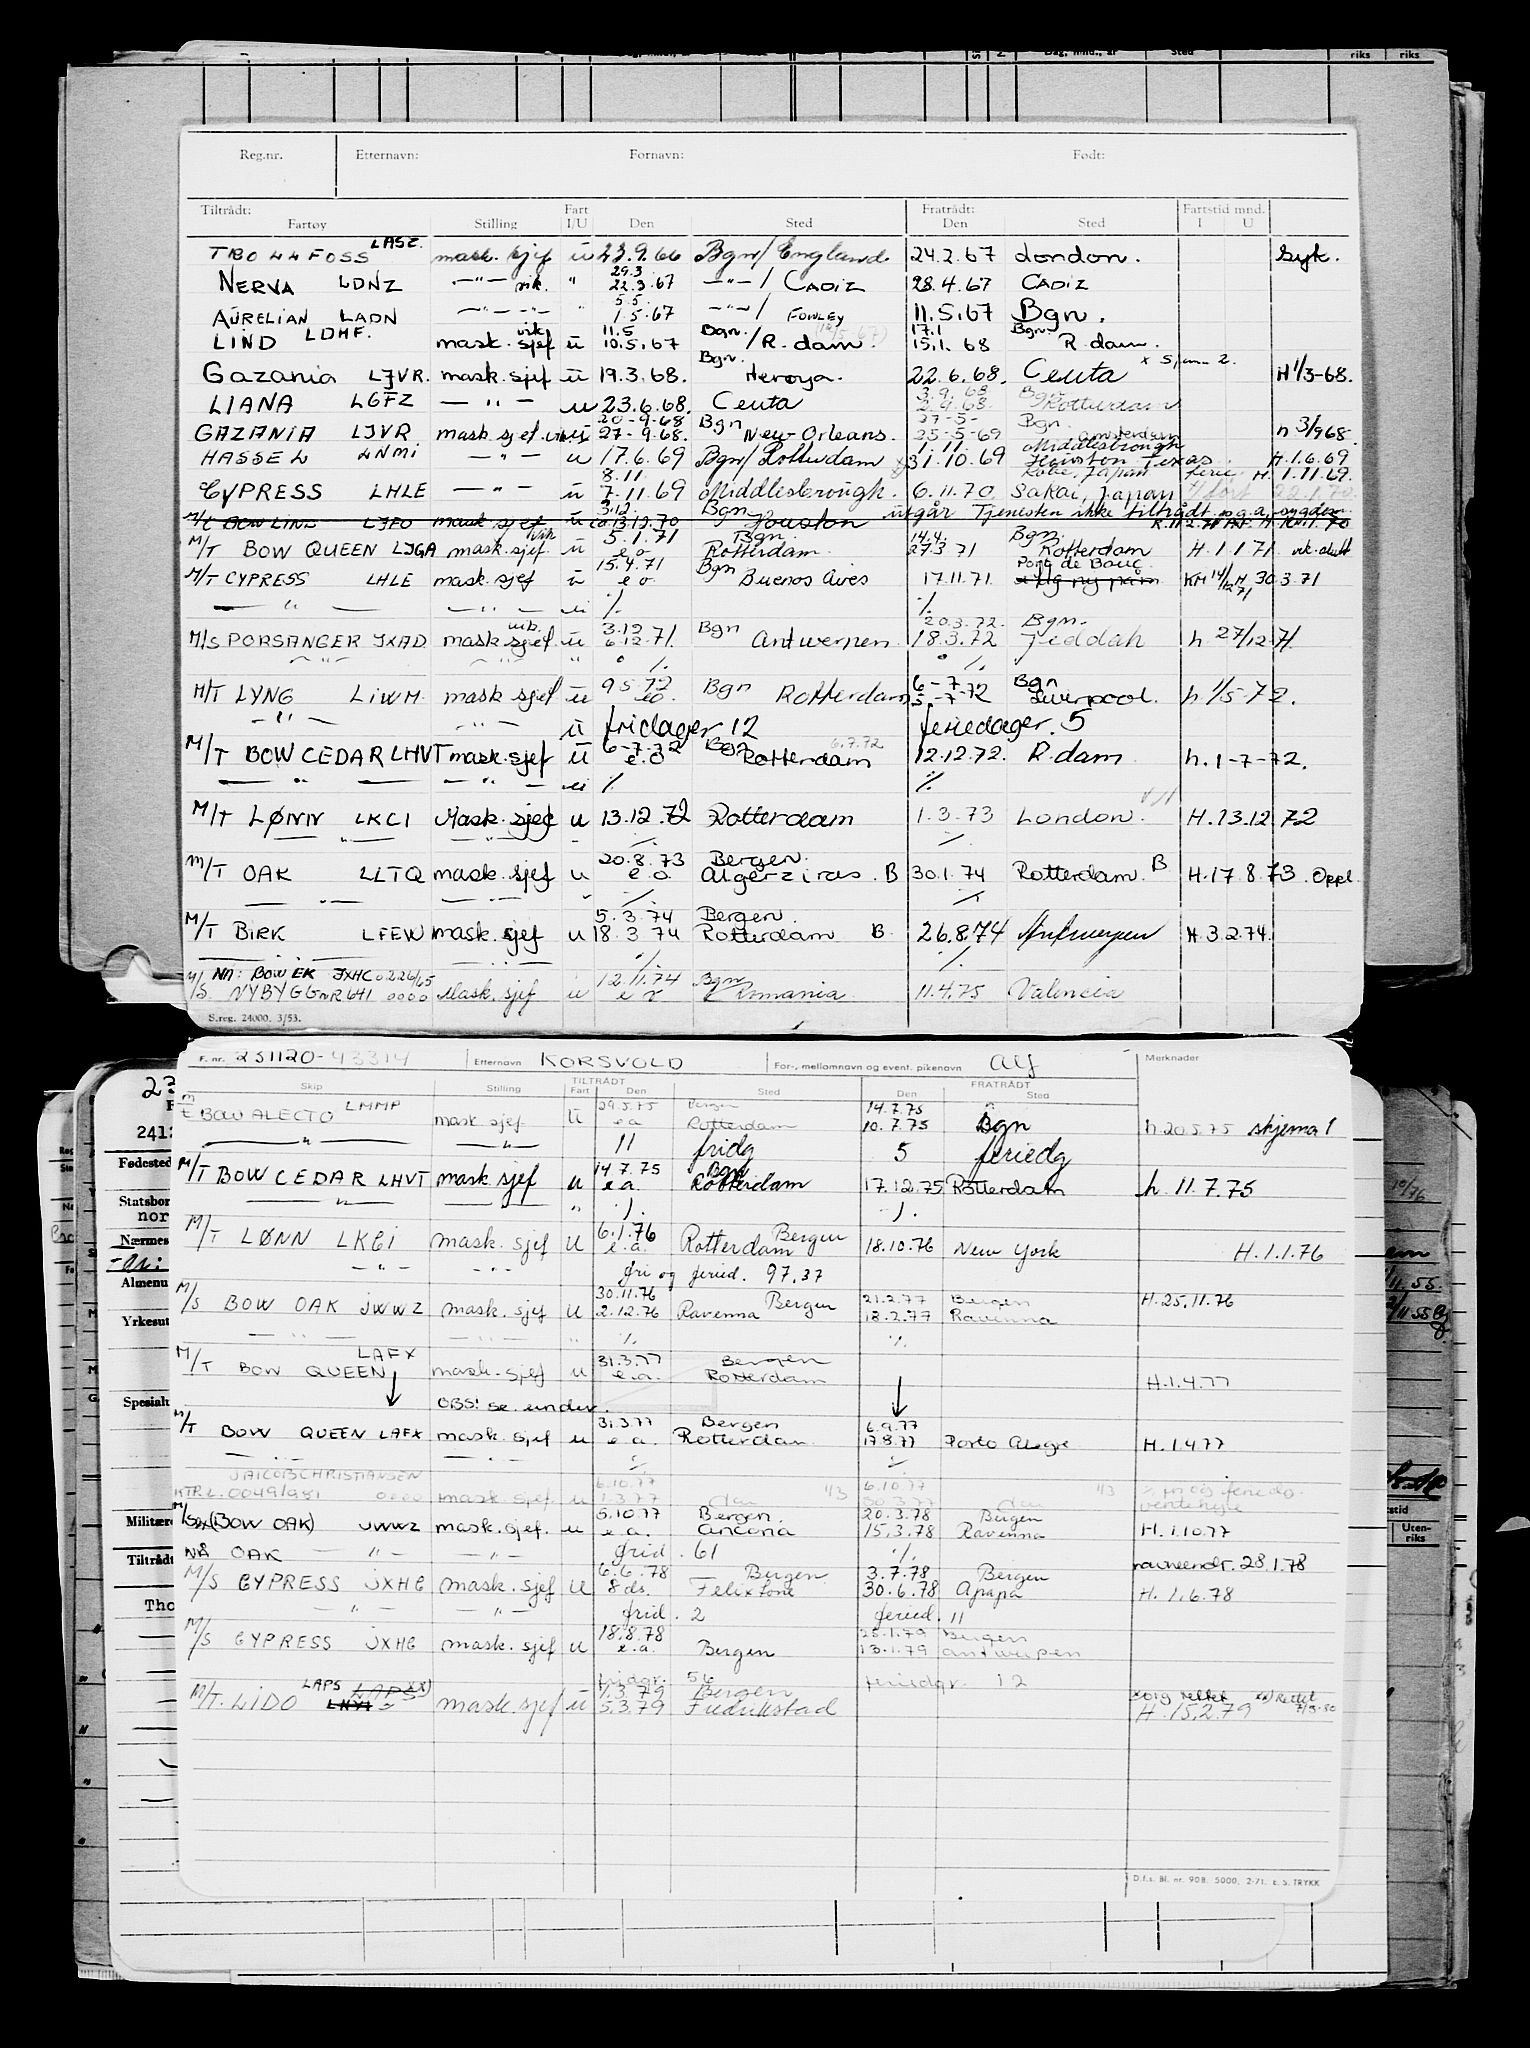 Reg.nr. Etternavn: Fornavn: Født:
Tiltrådt: Fartøy Stilling Fart I/U Den Sted Fratrådt: Den Sted Fartstid mnd. I U
LASZ.
mask. sjef ū 23.9.66 Bgn/England 24.2.67 London. Syk.
29.3
NERVA LDNZ —"— vik. " 22.3.67 —"—/ CADIZ 28.4.67 CADIZ
5.5.
AURELIAN LADN —"— —"— " 1.5.67 —"—/ FOWLEY 11.5.67 Bgn.
vik. 11.5 Bgn. 17.1 Bgn.
LIND LDHF. mask. sjef ū 10.5.67 /R.dam. 15.1.68 R.dam.
Bgn.
Gazania LJVR. mask. sjef ū 19.3.68. Herøya. 22.6.68. Ceuta H 1/3-68.
3.9.68 Bgn
LIANA LGFZ — " — u 23.6.68. Ceuta 2.9.68. Rotterdam
20-9-68 Bgn 27-5- Bgn.
GAZANIA LJVR mask. sjef. 27-9.68. New-Orleans. 25-5-69 Amsterdam h 3/9 68.
1.11 Middlesbrough
HASSEL LNMI —"— u 17.6.69 Bgn/Rotterdam 31.10.69 Houston Texas. H.1.6.69
8.11. Kobe, Japan ferie H 1.11.69.
CYPRESS LHLE —"— ū 7.11.69 Middlesbrough. 6.11.70. Sakai, Japan
3.12. Bgn
M/T BOW LIND LJFO mask. sjef ū ca 13.12.70 Houston utgår Tjenesten ikke tiltrådt p.g.a. sygdom
vik 5.1.71 Bgn. 14.4. Bgn.
M/T BOW QUEEN LJGA mask. sjef. ū e.o Rotterdam. 27.3.71 Rotterdam H.1.1.71 vik. slutt
15.4.71 Bgn Port de Bouc
M/T CYPRESS LHLE mask. sjef ū e o Buenos Aires 17.11.71. KM 14/12 71 H. 30.3.71
— " — — " — ui ./. ./.
vik. 3.12 Bgn 20.3.72. Bgn.
M/S PORSANGER JXAD mask. sjef ū 6.12.71. Antwerpen. 18.3.72 Jeddah h 27/12.71
— " — — " — " ./. ./.
9.5.72 Bgn 6-7- Bgn
M/T LYNG LIWM. mask. sjef ū eo. Rotterdam 5-7-72 Liverpool. h 1/5-72.
— " — — " — ū fridager 12 feriedager. 5
6-7-72 Bgn 6.7.72
M/T BOW CEDAR LHVT mask. sjef ū e.o Rotterdam 12.12.72. R.dam h. 1-7-72.
— " — — " — ui ./. ./.
M/T LØNN LKCI Mask. sjef u 13.12.72 Rotterdam 1.3.73 London. H.13.12.72
— " — — " — ./. ./.
20.8.73 Bergen.
M/T OAK LLTQ mask. sjef u e.o Algerziras. B 30.1.74 Rotterdam. B H.17.8.73. Oppl.
— " — — " — ./. ./.
5.3.74 Bergen.
M/T BIRK LFEW mask. sjef u 18.3.74 Rotterdam B. 26.8.74 Antwerpen H.3.2.74.
— " — — " — ./. ./.
NÅ: BOW EK JXHC 0226/65 12.11.74 Bgn
M/S. NYBYGG NR 641 0000 Mask. sjef u Romania. 11.4.75 Valencia
S.reg. 24000. 3/53.
F. nr. 231120-43314 Etternavn KORSVOLD For-, mellomnavn og event. pikenavn Alf Merknader
Skip Stilling TILTRÅDT Fart Den Sted FRATRÅDT Den Sted
LMMP 29.5.75 Bergen 14.7.75
m/t BOW ALECTO mask. sjef ū e.a Rotterdam 10.7.75 Bgn h 20.5.75 skjema 1
— " — — " — 11 fridg 5 feriedg
14.7.75 Bgn
M/T BOW CEDAR LHVT mask. sjef u e.a. Rotterdam 17.12.75 Rotterdam h. 11.7.75
— " — — " — " ./. ./.
6.1.76 Bergen
M/T LØNN LKCI mask. sjef u e.a. Rotterdam 18.10.76 New York H.1.1.76
— " — — " — fri og feried. 97.37
30.11.76 Bergen 21.2.77 Bergen
M/S BOW OAK JWWZ mask. sjef u 2.12.76 Ravenna 18.2.77 Ravenna H.25.11.76
— " — — " — " ./. ./.
LAFX 31.3.77 Bergen
M/T BOW QUEEN mask. sjef u e.a. Rotterdam H.1.4.77
OBS! se. under.
31.3.77 Bergen 6.9.77
M/T BOW QUEEN LAFX mask. sjef u e.a. Rotterdam. 17.8.77 Porto Alegre H.1.4.77
— " — — " — ./. ./.
JAICOB CHRISTIANSEN 6.10.77 6.10.77
KTR.L. 0049/981 0000 mask. sjef u 1.3.77 1/3 30.3.77 1/3
5.10.77 Bergen. 20.3.78 Bergen
M/S ex (BOW OAK) JWWZ mask. sjef. u e.a. Ancona 15.3.78 Ravenna H.1.10.77
NÅ OAK — " — — " — frid. 61 ./. navneendr. 28.1.78
6.6.78 Bergen 3.7.78 Bergen
M/S CYPRESS JXHG mask. sjef u 8 ds. Felixtone 30.6.78 Apapa H. 1.6.78
— " — — " — frid. 2 feried. 11
18.8.78 25.1.79 Bergen
M/S CYPRESS JXHG mask. sjef u e.a. Bergen 13.1.79 Antwerpen
fridgr. 56 feriedgr. 12
LAPS 1.3.79 Bergen xx) Rettet 7/3-80
M/T. LIDO mask. sjef ū 5.3.79 Fredrikstad H. 15.2.79
D.f.s. Bl. nr. 90B. 5000, 2-71. E. S. TRYKK
241
Fødested
Statsbor
nor
Nærmes
Almenu
Yrkesut
Spesialu
Militære
Tiltrådt
Tho
Uten-
riks